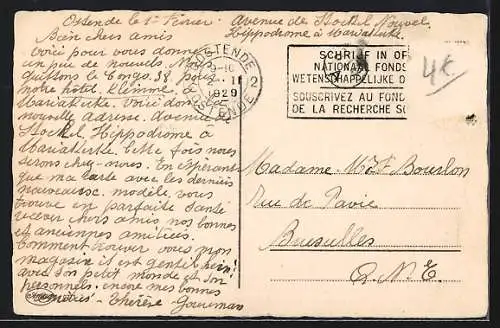 Ostende le 1er Février. Avenue de Stockel Nouvel
Hippodrome à Mariakerke
Bien chers amis
Voici pour vous donner
un peu de nouvels. Nous
quittons le Congo. 58. pour
notre hôtel. Klimme. à
Mariakerke. Voici donc la
nouvelle adresse. Avenue
Stockel. Hippodrome à
Mariakerke. Cette fois nous
serons chez-nous. En Espérant
que ma carte avec les derniers
modèle. vous
trouve en parfaite santé
recever chers amis nos bonnes
et anciennes amitiées.
Comment trouver vous mon
magasin il est gentil hein!
avec son petit monde et son
personnels. encore mes bonnes
Thérèse - Gouveman
OOSTENDE
1929
OSTENDE
2
SCHRIJF IN OP
NATIONAAL FONDS
WETENSCHAPPELIJKE O
SOUSCRIVEZ AU FOND
DE LA RECHERCHE SC
4€
Madame Bourlon
Rue de Pavie
Bruxelles
Q. N. E.